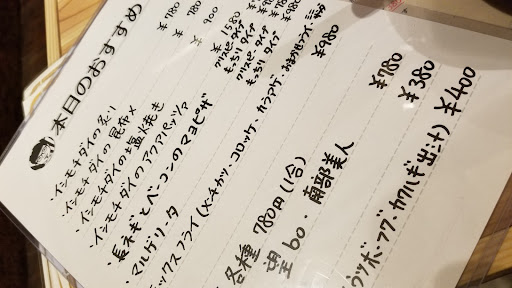 本日のおすすめ
・イシモチダイの炙り ¥780
・イシモチダイの昆布〆 ¥780
・イシモチダイの塩火焼き ¥900
・イシモチダイのアクアパッツァ ¥1580
・長ネギとベーコンのマヨピザ クリスピータイプ
もっちりタイプ
・マルゲリータ クリスピータイプ
もっちりタイプ
ミックスフライ(メンチカツ・コロッケ・ ¥980
各種 780円(1合)
望60・南部美人
¥780
¥380
ウツボ・フグ・カワハギ出汁) ¥400